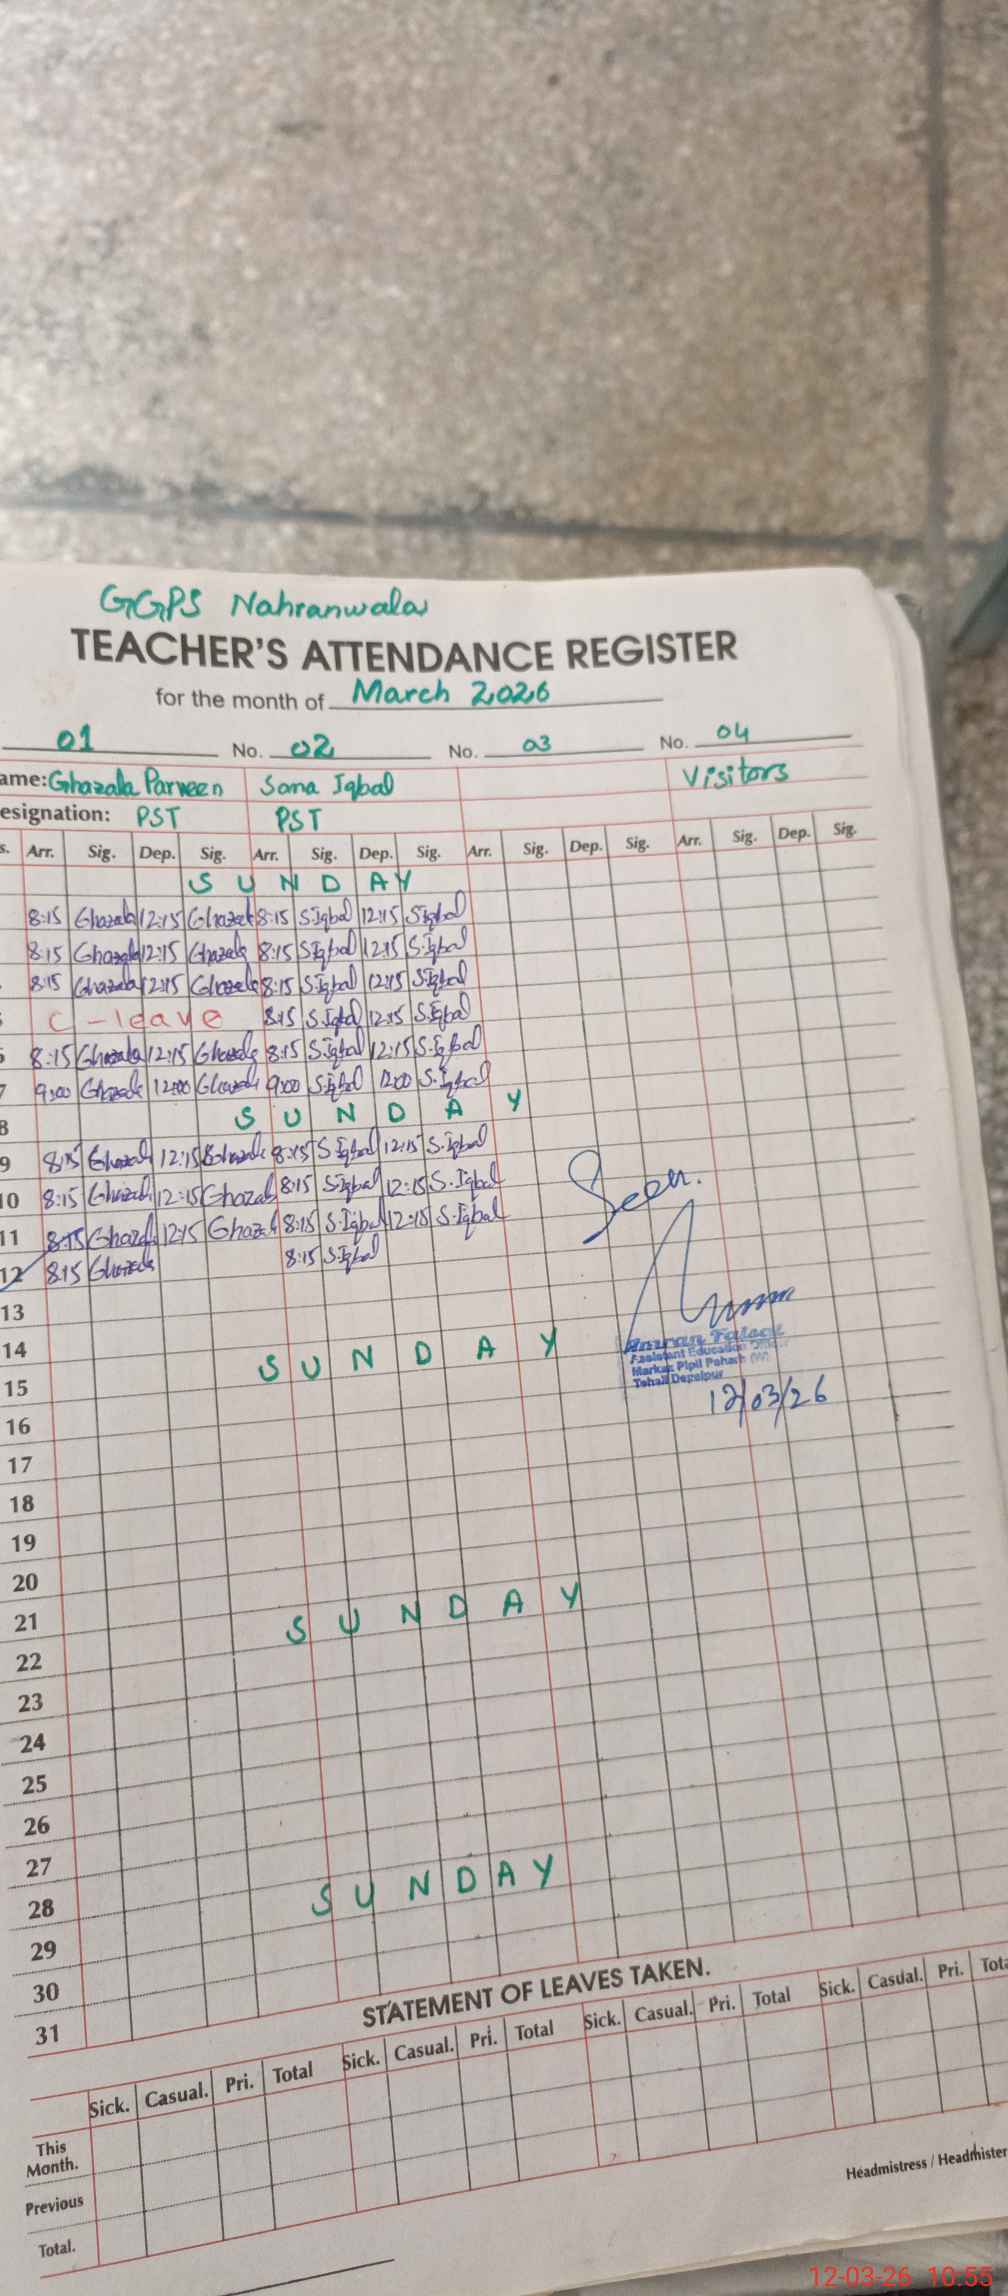 GGPS Nahranwala
TEACHER'S ATTENDANCE REGISTER
for the month of March 2026
01 No. 02 No. 03 No. 04
ame: Ghazala Parveen Soma Iqbal Visitors
esignation: PST PST
s. Arr. Sig. Dep. Sig. Arr. Sig. Dep. Sig. Arr. Sig. Dep. Sig. Arr. Sig. Dep. Sig.
SUNDAY
8:15 Ghazala 12:15 Ghazala 8:15 S.Iqbal 12:15 S.Iqbal
8:15 Ghazala 12:15 Ghazala 8:15 S.Iqbal 12:15 S.Iqbal
8:15 Ghazala 12:15 Ghazala 8:15 S.Iqbal 12:15 S.Iqbal
C-leave 8:15 S.Iqbal 12:15 S.Iqbal
8:15 Ghazala 12:15 Ghazala 8:15 S.Iqbal 12:15 S.Iqbal
7 9:00 Ghazala 12:00 Ghazala 9:00 S.Iqbal 12:00 S.Iqbal
8 SUNDAY
9 8:15 Ghazala 12:15 Ghazala 8:15 S.Iqbal 12:15 S.Iqbal
10 8:15 Ghazala 12:15 Ghazala 8:15 S.Iqbal 12:15 S.Iqbal
Seen.
11 8:15 Ghazala 12:15 Ghazala 8:15 S.Iqbal 12:15 S.Iqbal
12 8:15 Ghazala 8:15 S.Iqbal
13
14 SUNDAY
Assistant Education
Markaz Pipli Pahar (W)
Tehsil Depalpur
12/03/26
15
16
17
18
19
20
21 SUNDAY
22
23
24
25
26
27
28 SUNDAY
29
30
31
STATEMENT OF LEAVES TAKEN.
Sick. Casual. Pri. Total Sick. Casual. Pri. Total Sick. Casual. Pri. Total Sick. Casual. Pri. Tota
This Month.
Previous
Total.
Headmistress / Headmister
12-03-26 10:55